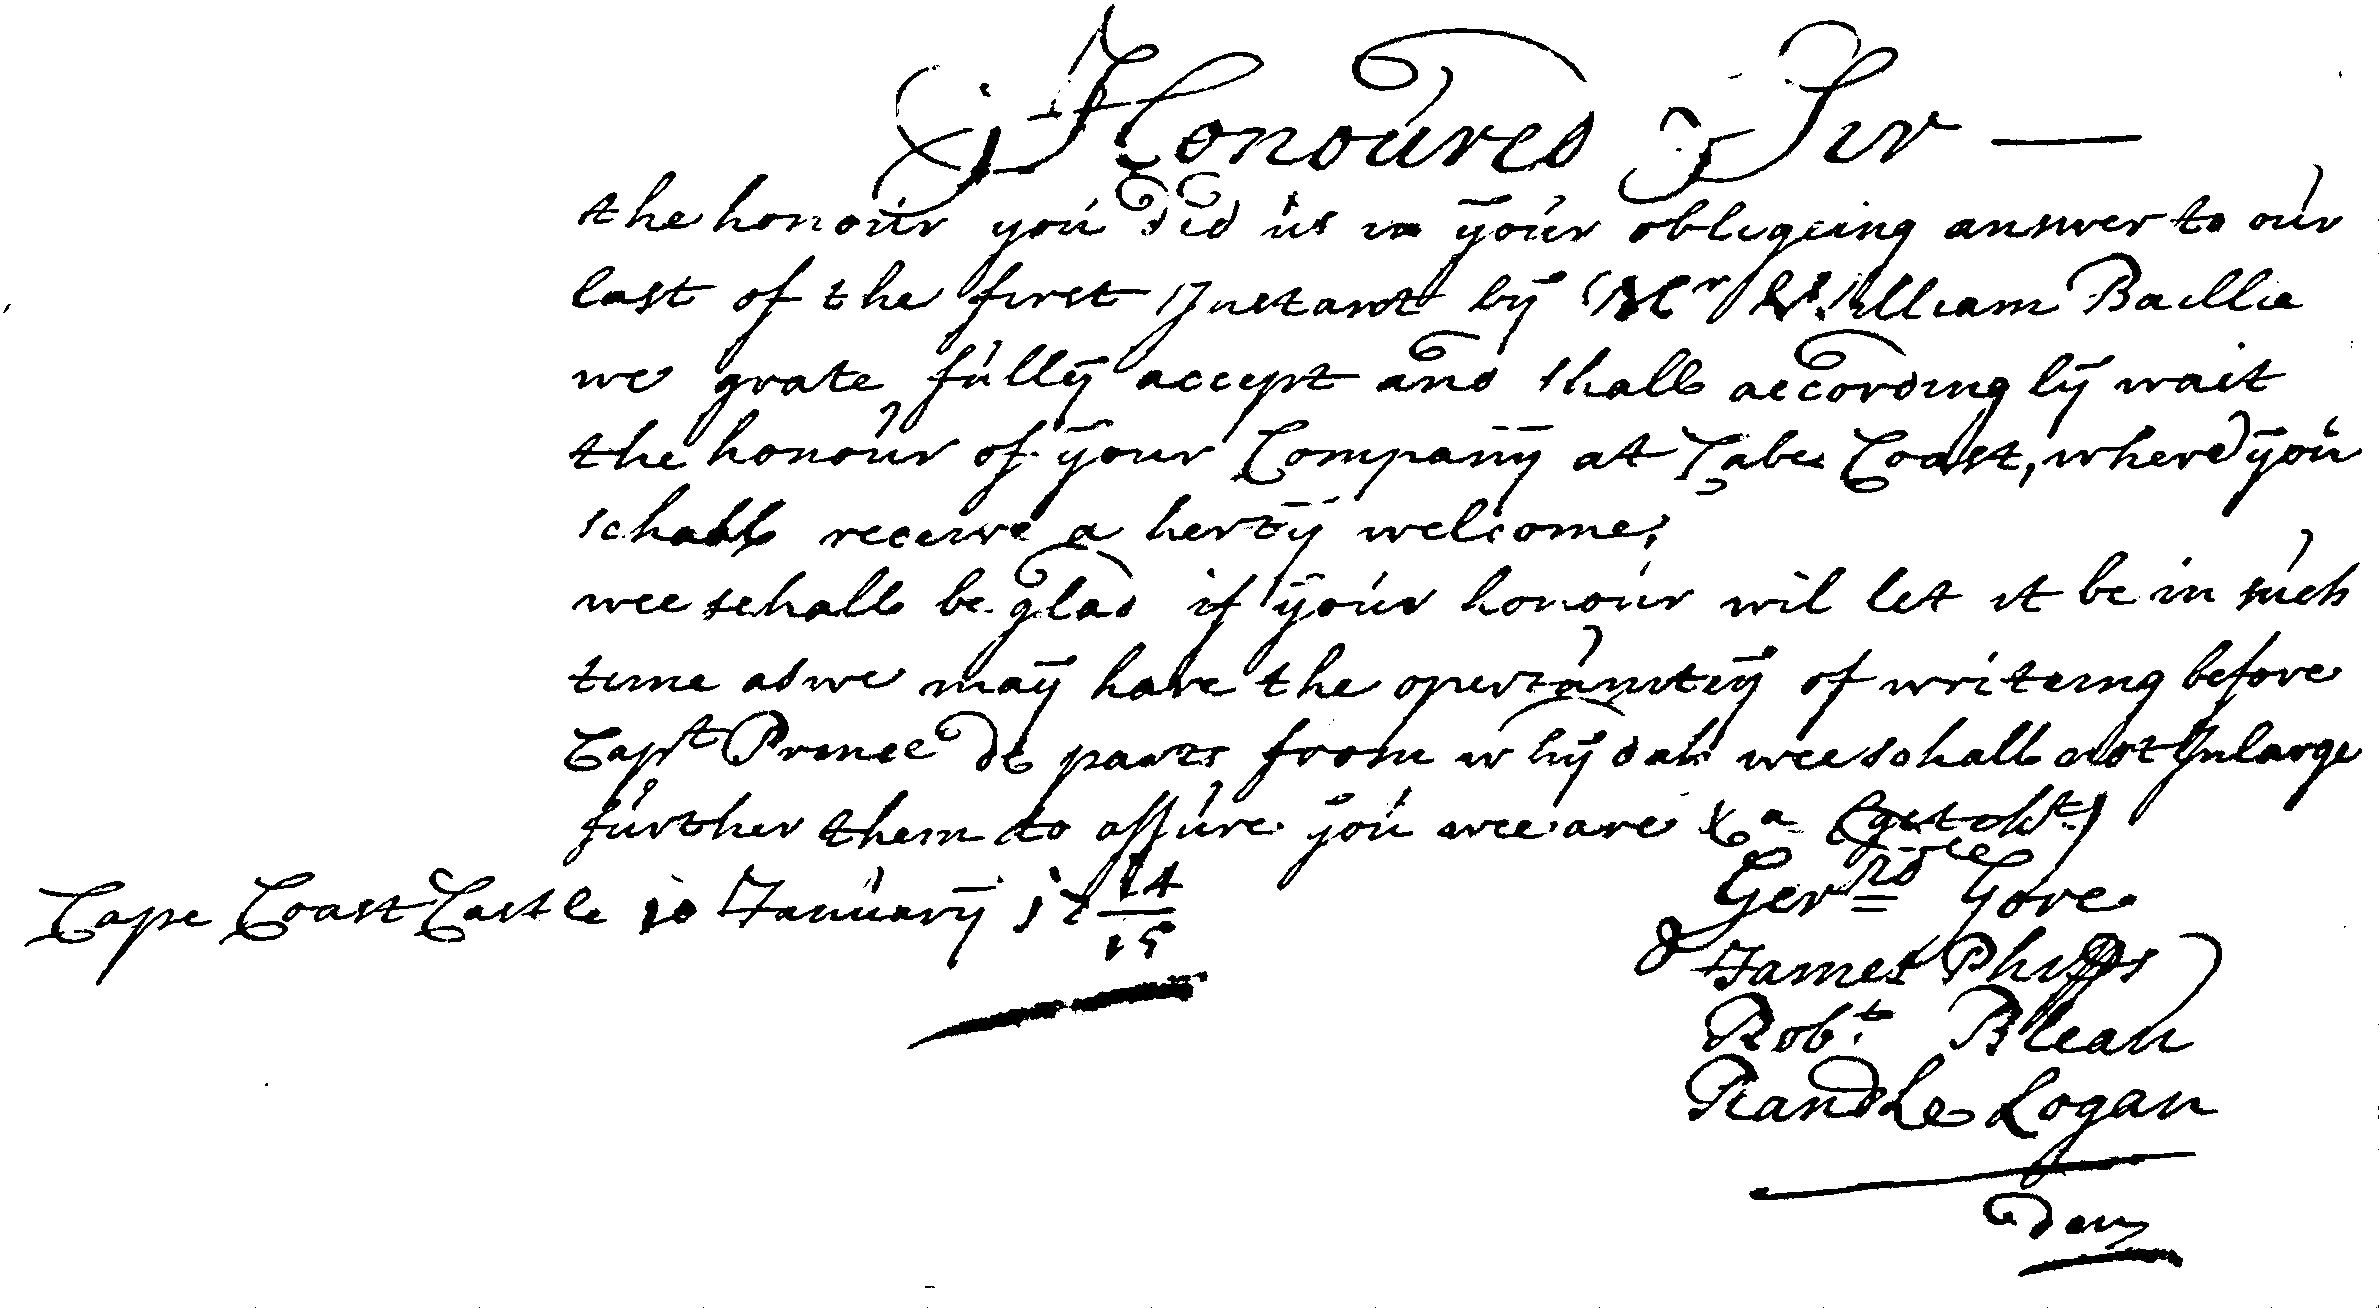 Honoured Sir —
the honour you did us in your obligeing answer to our
last of the first Instant by Mr William Baillie
we grate fully accept and shall according ly wait
the honour of your Company at Cabe Coast, where you
schall receive a herty welcome,
wee schall be glad if your honour wil let it be in such
time as we may have the opertunity of writeing before
Capt Prince de parts from whydah wee schall not Inlarge
further them to assure you wee are &a (getekt)
Gerrd Gore
Cape Coast Castle 10 January 17 14/15
& James Phipps
Robt Blean
Randle Logan